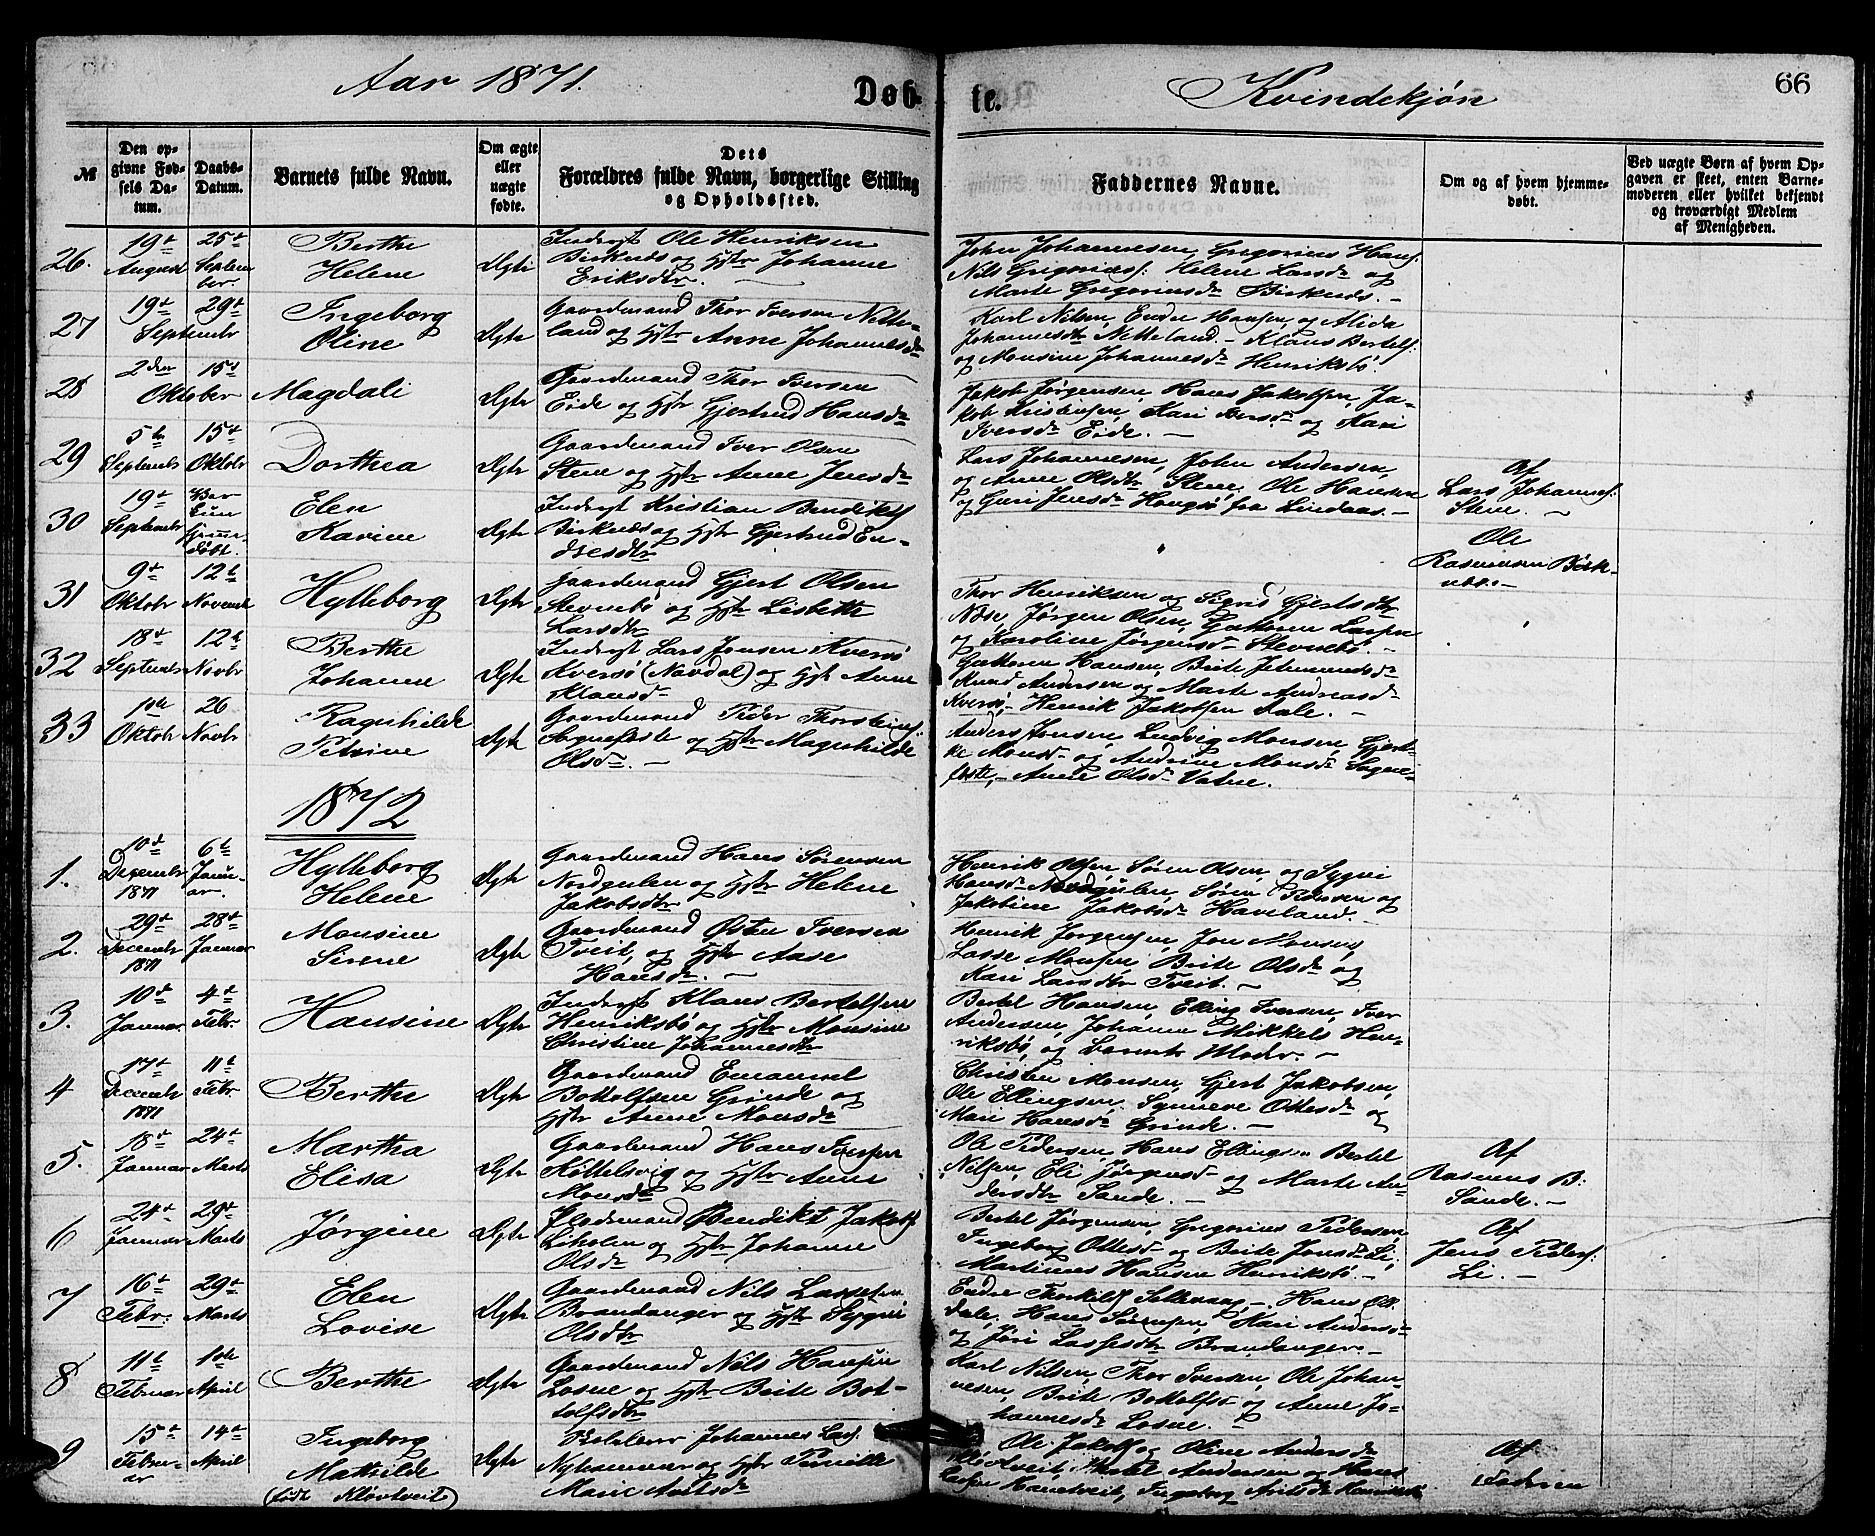 Aar 1871.
Døb-
te.
Kvindekjøn
66
№
Den op-
givne Fød-
sels Da-
tum.
Daabs-
Datum.
Barnets fulde Navn.
Om ægte
eller
uægte
fødte.
Dets
Forældres fulde Navn, borgerlige Stilling
og Opholdssted.
Faddernes Navne.
Om og af hvem hjemme-
døbt.
Ved uægte Børn af hvem Op-
gaven er skeet, enten Barne-
moderen eller hvilket bekjendt
og troværdigt Medlem
af Menigheden.
26.
19de August
25de September
Berthe
Helene
Ægte
Inderst Ole Henriksen
Birknes og Hstr Johanne
Eriksdtr.
John Johannesen, Gregorius Hans:
Nils Grigorius: Helene Larsdr og
Marte Gregoriusdr Birknes. -
27
19de
29de
Septembr
Ingeborg
Oline
Ægte
Gaardmand Thor Iversen Nette-
land og Hstr Anne Johannesdr
Karl Nilsen, Endre Hansen, og Alida
Johannesdtr Netteland - Klaus Bertels:
og Monsine Johannesdr Henriksbø
28
2den
15de
Oktober
Magdali
Ægte
Gaardmand Thor Iversen
Eide og Hstr Gjertrud Hansdr
Jakob Jørgensen, Hans Jakobsen, Ja-
kob Kristensen, Kari Iversdr og Kari
Iversdr Eide. -
29
5te Septembr
15de Oktobr
Dorthea
Ægte
Gaardmand Iver Olsen
Stene og Hstr Anne Jensdr
Lars Johannesen, John Andersen,
og Anne Olsdtr Stene, Ole Hansen
og Guri Jensdr Hougsø fra Lindaas. -
Af
Lars Johannes:
Stene. -
30
19de Septembr
Bar
Kun
hjemme-
døbt.
Elen
Karine
Ægte
Inderst Kristian Bendiks:
Birknes og Hstr Gjertrud En-
dresdtr
Ole
Rasmussen Birk-
nes. -
31
9de Oktobr
12te Novembr
Hylleborg
Ægte
Gaardmand Gjert Olsen
Stevnebø og Hstr Lisbette
Larsdtr
Thor Henriksen og Sigrid Gjertsdtr
Næse, Jørgen Olsen, Guttorm Larsen
og Karoline Jørgensdr Stevnebø. -
32
18de Septembr
12te Novbr
Berthe
Johanne
Ægte
Inderst Lars Jonsen Kversø
Kversø (Navdal) og Hstr Anne
Klausdr
Guttorm Hansen, Brite Jetmundsdr
Knud Andersen og Marte Andreasdr
Kversø, Henrik Jakobsen Dale. -
33
1ste Oktobr
26 Novbr
Ragnhilde
Petrine
Ægte
Gaardmand Peder Thorsteins:
Sognefeste og Hstr Magnhilde
Olsdr. -
Anders Jonsen, Ludvig Monsen, Gjert-
ke Monsdr og Andrine Monsdr Sogne-
feste, - Anne Olsdr Vatne.
1872
1.
10de Decembr 1871
6te Januar.
Hylleborg
Helene
Ægte
Gaardmand Hans Sørensen
Nordgulen og Hstr Helene
Jakobsdtr
Henrik Olsen, Søren Olsen, og Sygni
Hansdr Nordgulen, Søren Pedersen og
Jakobine Jakobsdr Haveland. -
2.
29de Decembr 1871
28de Januar
Monsine
Sirene
Ægte
Gaardmand Østen Iversen
Tveit, og Hstr Aase
Hansdr. -
Henrik Jørgensen, Jon Monsen,
Lasse Monsen, Brite Olsdr og
Kari Larsdtr Tveit. -
3.
10de Januar
4de Febr.
Hansine
Ægte
Inderst Klaus Bertelsen
Henriksbø og Hstr Monsine
Christine Johannesdtr
Bertel Hansen, Elling Iversen, Iver
Andersen, Johanne Mikkels Hen-
riksbø, og Barnets Moder. -
4
17de Decembr 1871
11te Febr.
Berthe
Ægte
Gaardmand Emanuel
Bottolfsen Grinde og
Hstr Anne Monsdr
Christen Monsen, Gjert Jakobsen,
Ole Ellingsen, Synneve Ottesdr og
Mari Hansdr Grinde. -
5.
18de Januar
24de Marts
Martha
Elisa
Ægte
Gaardmand Hans Iversen
Kjøttelsvig og Hstr Anne
Monsdtr
Ole Pedersen, Hans Ellingsen Bertel
Nilsen, Eli Jørgensdr og Marte An-
dersdtr Sande. -
Af
Rasmus B:
Sande. -
6
24de Januar
29de Marts
Jørgine
Ægte
Pladsmand Bendikt Jakobs:
Liholen og Hstr Johanne
Olsdr
Bertel Jørgensen, Gregorius Pedersen,
Ingeborg Ottesdr og Brite Jonsdr Li,
Martinus Hansen Henriksbø. -
Af
Jens Peders:
Li. -
7
16de Febr.
29de Marts
Elen
Lovise
Ægte
Gaardmand Nils Lassesen
Brandanger og Hstr Sygni
Olsdtr
Endre Thorkils: Sellevaag, - Hans Ols:
Dale, Hans Sørensen, Kari Andersdr
og Jori Lassesdtr Brandanger. -
8
11te Februar
1ste April
Berthe
Ægte
Gaardmand Nils Hansen
Losne og Hstr Brite Bot-
tolfsdtr
Karl Nilsen, Thor Iversen, Ole Johan-
nesen, Brite Bottolfsdr og Anne Jo-
hannesdr Losne. -
9
15de Februar
14de April
Ingeborg
Mathilde
(født Kløvtveit)
Ægte
Johannes Lars:
Nyhammer og Hstr Pernille
Marie Antsdr
Ole Jakobs: og Oline Andersdr
Kløvtveit, Bertel Andersen og Hans
Larsen Hantveit, Ingeborg Antsdr
Af
Faderen